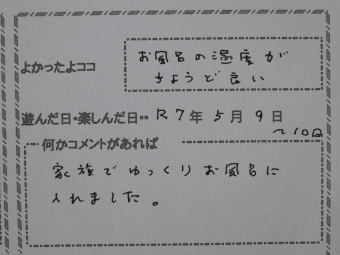 よかったよココ
お風呂の湿度が
ちょうど良い
遊んだ日・楽しんだ日・・ R7年5月9日
~10日
何かコメントがあれば
家族でゆっくりお風呂に
入れました。